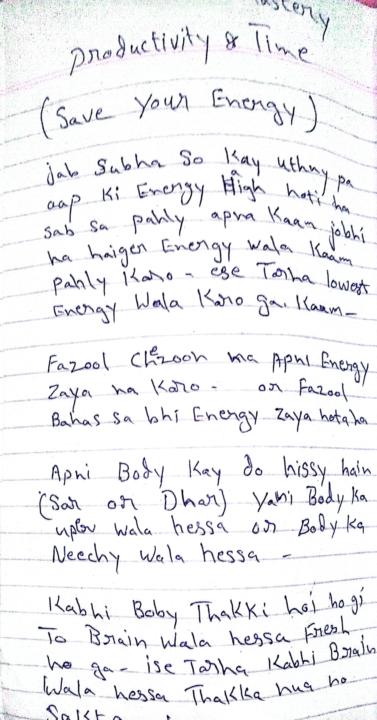 astery
Productivity & Time
(Save Your Energy)
jab Subha So Kay uthny pa
aap Ki Energy High hoti ha
sab sa pahly apna Kaam jobhi
ha haigen Energy wala Kaam
pahly Karo - ese Tarha lowest
Energy Wala Karo ga. Kaam -
Fazool Chezoon ma Apni Energy
Zaya na Karo - or Fazool
Bahas sa bhi Energy Zaya hota ha
Apni Body Kay do hissy hain
(Sar or Dhar) Yani Body Ka
upper wala hessa or Body Ka
Neechy Wala hessa -
Kabhi Boby Thakki hoi hogi
To Brain Wala hessa Fresh
ho ga - ise Tarha Kabhi Brain
Wala hessa Thakka hua ho
Sakt